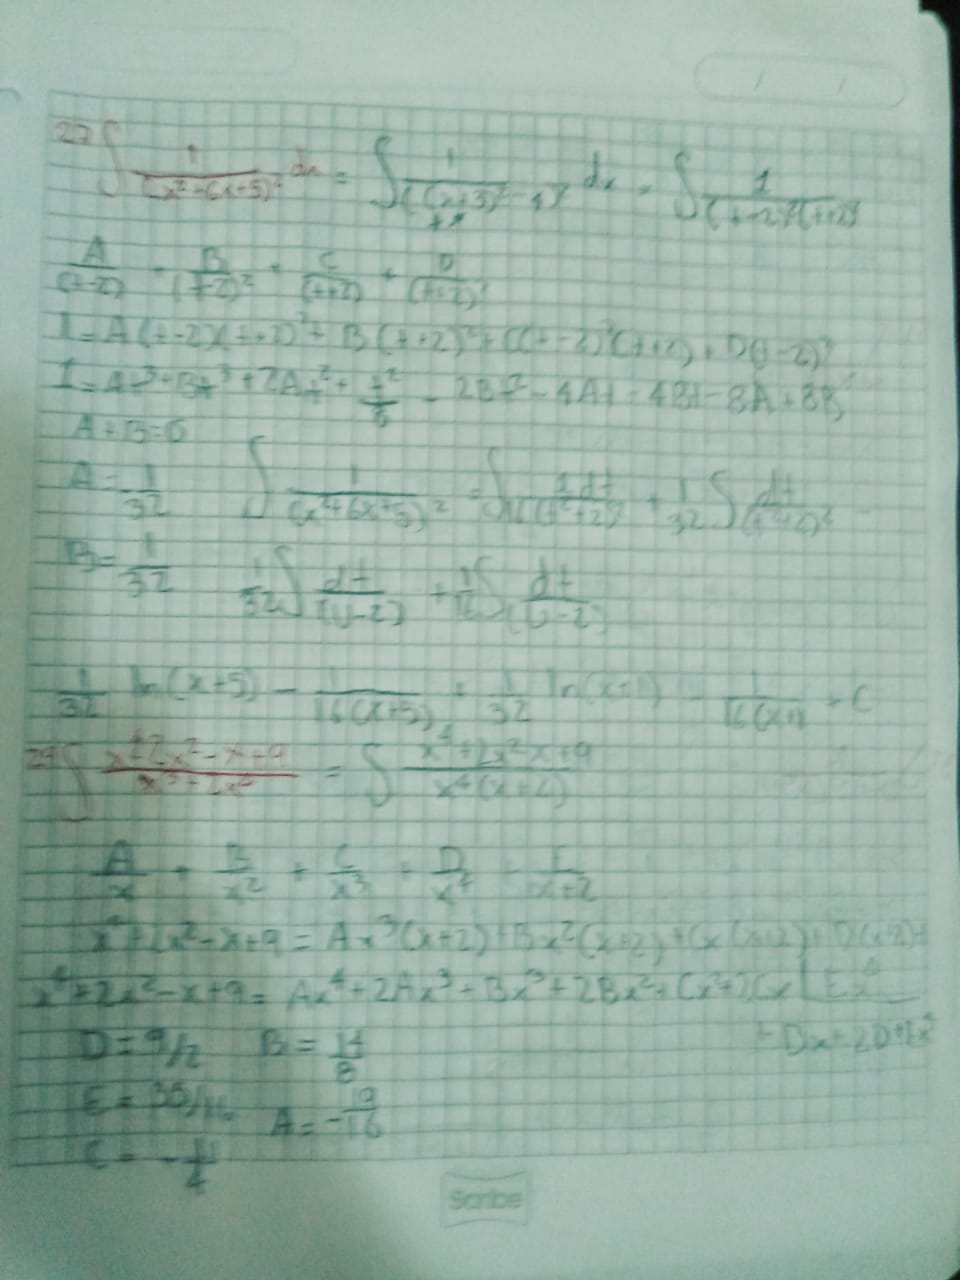 27 ∫ 1/(x²+6x+5)² dx = ∫ 1/((x+3)²-4)² dx = ∫ 1/(t-2)²(t+2)²
A/(t-2) + B/(t-2)² + C/(t+2) + D/(t+2)²
1 = A(t-2)(t+2)² + B(t+2)² + C(t-2)²(t+2) + D(t-2)²
1 = At³+Bt³+2At²+ - 2Bt² - 4At - 4Bt - 8A + 8B
A+B=0
A = 1/32 ∫ 1/(x²+6x+5)² = + 1/32 ∫ dt
B = 1/32 1/32 ∫ dt/(u-2) + 1/16 ∫ dt/(u-2)
1/32 ln(x+5) - 1/16(x+5) + 1/32 ln(x+1) - 1/16(x+1) + C
29 ∫ x⁴+2x²-x+9/x⁵+2x⁴ = ∫ x⁴+2x²-x+9/x⁴(x+2)
A/x + B/x² + C/x³ + D/x⁴ + E/x+2
x⁴+2x²-x+9 = Ax³(x+2)+Bx²(x+2)+Cx(x+2)+D(x+2)+
x⁴+2x²-x+9 = Ax⁴+2Ax³+Bx³+2Bx²+Cx²+2Cx Ex⁴
+Dx+2D+Ex⁴
D = 9/2 B = 19/8
E = 35/16 A = -19/16
C = -11/4
Scribe